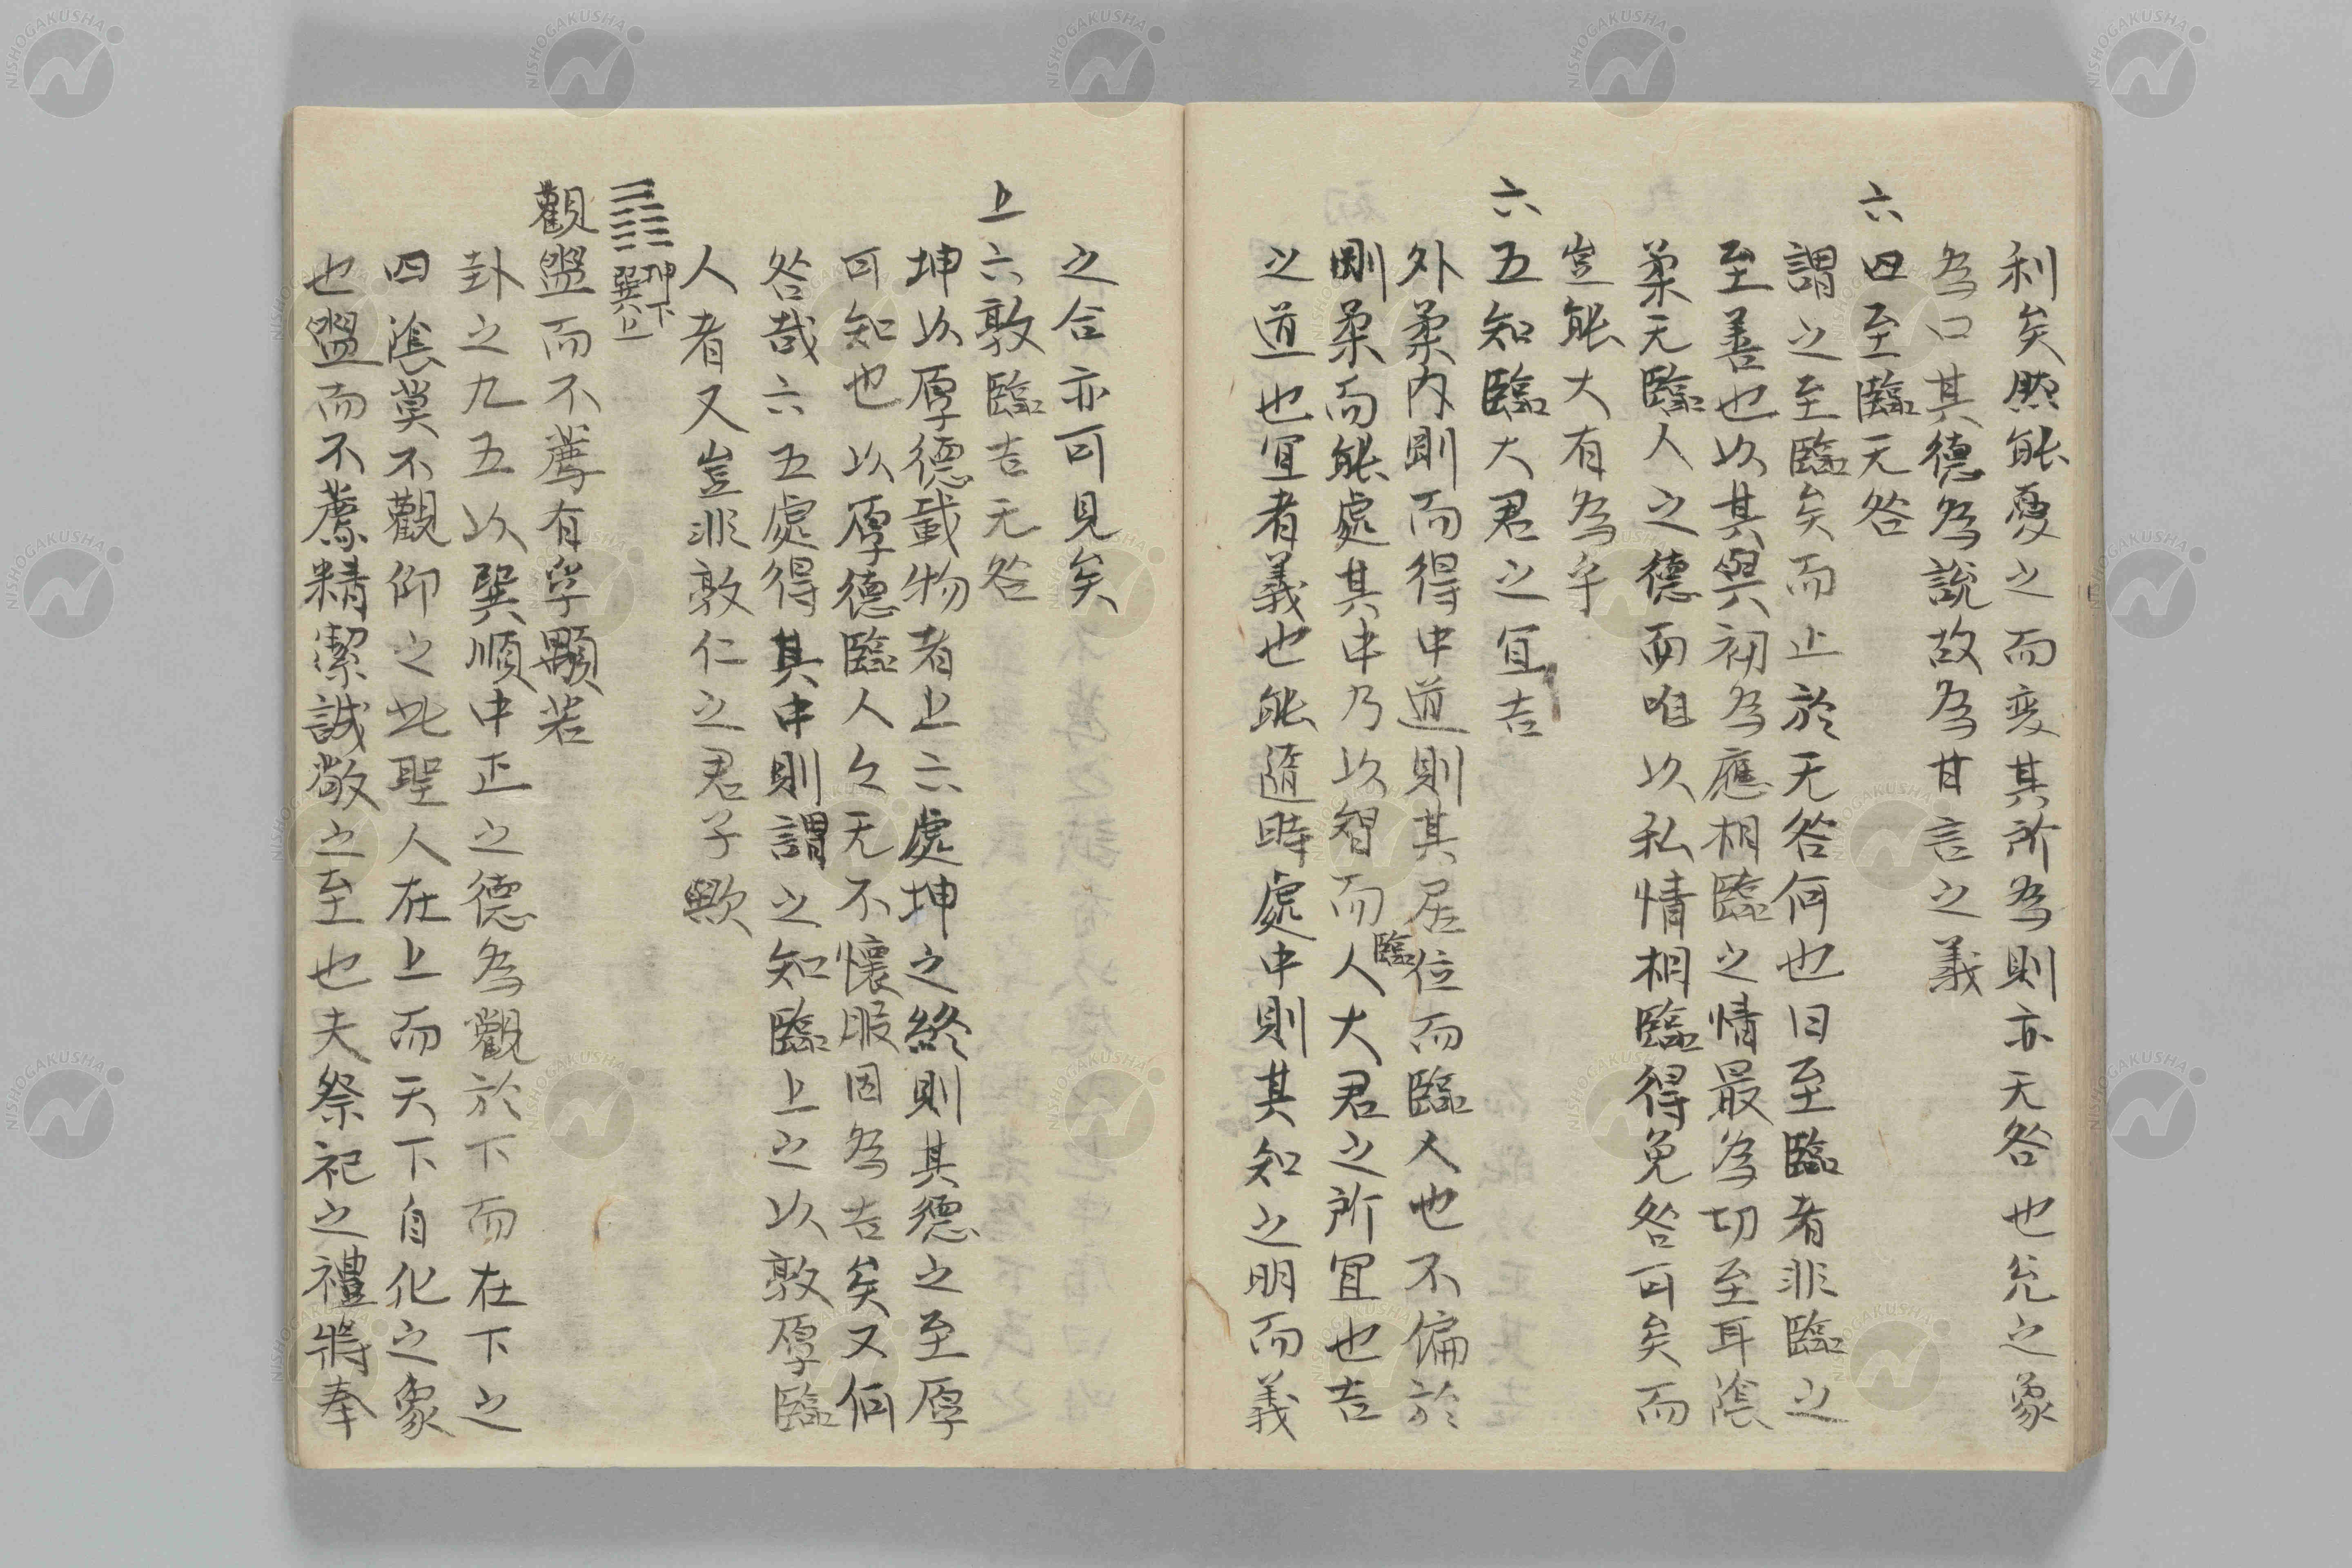 利矣然能憂之而变其所為則亦无咎也兊之象
為口其德為說故為甘言之義
六四至臨无咎
謂之至臨矣而止於无咎何也曰至臨者非臨之
至善也以其與初為應相臨之情最為切至耳陰
柔无臨人之德而唯以私情相臨得免咎可矣而
豈能大有為乎
六五知臨大君之宜吉
外柔內剛而得中道則其居位而臨人也不偏於
剛柔而能處其中乃以智而臨人大君之所宜也吉
之道也宜者義也能隨時處中則其知之明而義
之合亦可見矣
上六敦臨吉无咎
坤以厚德載物者上六處坤之終則其德之至厚
可知也以厚德臨人々无不懷服因為吉矣又何
咎哉六五處得其中則謂之知臨上之以敦厚臨
人者又豈非敦仁之君子歟
䷓坤下巽上
觀盥而不薦有孚顒若
卦之九五以巽順中正之德為觀於下而在下之
四陰莫不觀仰之此聖人在上而天下自化之象
也盥而不薦精潔誠敬之至也夫祭祀之禮將奉
NISHOGAKUSHA